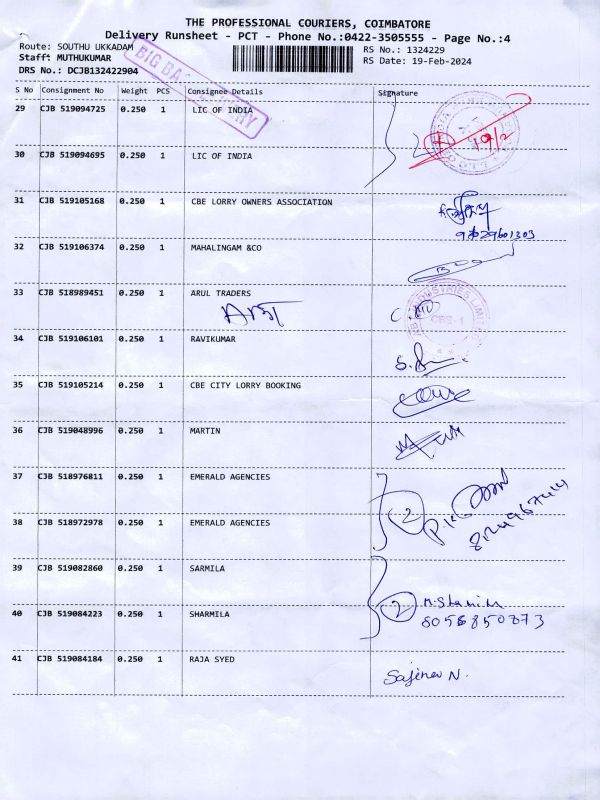 THE PROFESSIONAL COURIERS, COIMBATORE
Delivery Runsheet - PCT - Phone No.:0422-3505555 - Page No.:4
Route: SOUTHU UKKADAM RS No.: 1324229
Staff: MUTHUKUMAR RS Date: 19-Feb-2024
DRS No.: DCJB132422904
S No Consignment No Weight PCS Consignee Details Signature
29 CJB 519094725 0.250 1 LIC OF INDIA
19/2
30 CJB 519094695 0.250 1 LIC OF INDIA
31 CJB 519105168 0.250 1 CBE LORRY OWNERS ASSOCIATION
32 CJB 519106374 0.250 1 MAHALINGAM &CO
33 CJB 518989451 0.250 1 ARUL TRADERS
34 CJB 519106101 0.250 1 RAVIKUMAR
35 CJB 519105214 0.250 1 CBE CITY LORRY BOOKING
36 CJB 519048996 0.250 1 MARTIN
37 CJB 518976811 0.250 1 EMERALD AGENCIES
2
38 CJB 518972978 0.250 1 EMERALD AGENCIES
39 CJB 519082860 0.250 1 SARMILA
2
40 CJB 519084223 0.250 1 SHARMILA
8056850873
41 CJB 519084184 0.250 1 RAJA SYED